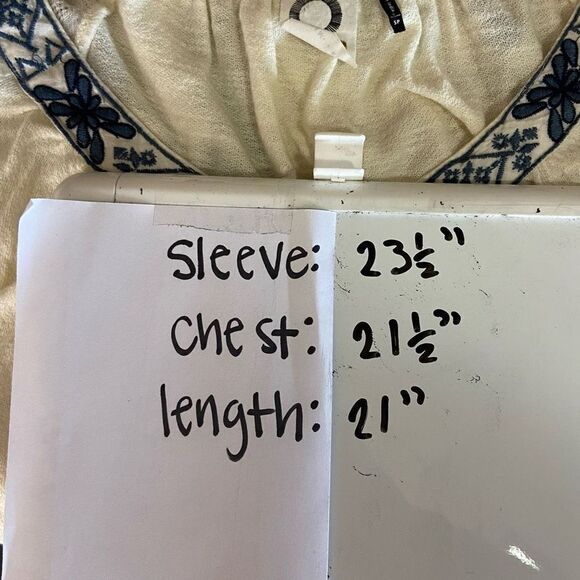 sleeve: 23½"
chest: 21½"
length: 21"